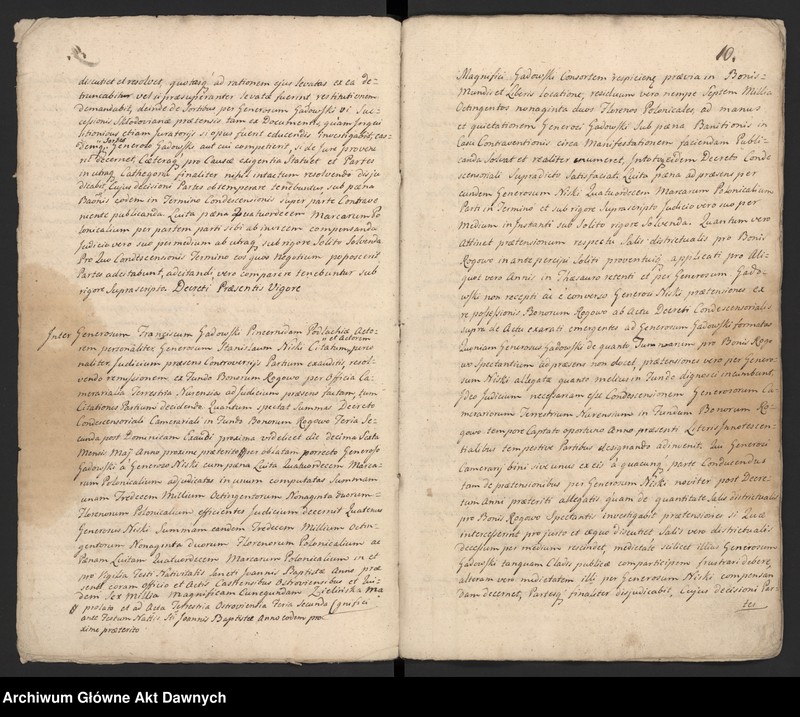 discutiet et resolvet, quotquot ad rationem ejus levatas ex ea de-
truncabitur vel si præsuperanter levatæ fuerint, restitutionem
demandabit, deinde de sortibus per Generosum Gadowski vi Suc-
cessionis Sklodovianæ prætensis tam ex Documentis, quam
etiam juratoriis si opus fuerit educendis Investigabit, eas-
Sortes
Demq Generoso Gadowski aut cui competierit, si de Jure provene-
rit decernet, Cæteraq pro Causæ exigentia Statuet et Partes
in utraq Cathegoria finaliter nihil intactum resolvendo disju-
dicabit, Cujus decisioni Partes obtemperare tenebuntur sub pæna
Banitionis eodem in Termino Condescensionis super parte Contrave-
niente publicanda. Luita pæna quatuordecem Marcarum Po-
lonicalium per partem parti sibi ab invicem compensanda
Judicio vero suo per medium ab utraq sub rigore Solito Solvenda
Pro Quo Condescensionis Termino eos quos Negotium poposcerit
Partes adcitabunt, adcitandi vero comparere tenebuntur sub
rigore Suprascripto Decreti Præsentis Vigore
Inter Generosum Franciscum Gadowski Pincernidam Podlachiæ Acto-
et actorem
rem personaliter Generosum Stanislaum Niski Citatum perso-
naliter Judicium præsens Controversiis Partium exauditis, resol-
vendo remissionem ex Fundo Bonorum Rogowo per Officia Ca-
meraria Terrestria Nurensia ad Judicium præsens factam, tum
Citationes Partium decidendo Quantum spectat Summas Decreto
Condescensoriali Camerariali in Fundo Bonorum Rogowo Feria Se-
cunda post Dominicam Exaudi proxima videlicet die decima Sexta
Mensis Maji Anno proxime præterito per oblatam porrecto Generoso
Gadowski a Generoso Niski cum pæna Luita Quatuordecem Marca-
rum Polonicalium adjudicatas in unum computatas Summam
unam Tredecem Millium Octingentorum Nonaginta duorum
Florenorum Polonicalium efficientes Judicium decernit Quatenus
Generosus Niski Summam eandem Tredecem Millium Octin-
gentorum Nonaginta duorum Florenorum Polonicalium ac
Pænam Luitam Quatuordecem Marcarum Polonicalium in et
pro Vigilia Festi Nativitatis Sancti Joannis Baptistæ Anno præ-
senti coram officio et Actis Castrensibus Ostroviensibus et qui-
dem Sex Millia Magnificam Cunegundam Zielinska Ma-
gnifici
prolato et ad Acta Terrestria Ostroviensia Feria Secunda
ante Festum Nattis Sti Joannis Baptistæ Anno eodem pro-
xime præterito
10.
Magnifici Gadowski Consortem respiciens prævia in Bonis-
Mundis et Liberis locatione, residuum vero nempe Septem Millia
Octingentos nonaginta duos Florenos Polonicales, ad manus
et quietationem Generosi Gadowski sub pæna Banitionis in
Casu Contraventionis circa Manifestationem faciendam Publi-
canda Solvat et realiter enumeret, Intotoq eidem Decreto Conde-
scensoriali Supradicto Satisfaciat, Luita pæna ad præsens per
eundem Generosum Niski Quatuordecem Marcarum Polonicalium
Parti in Termino et sub rigore Suprascripto Judicio vero suo per
medium in Instanti sub Solito rigore Solvenda. Quantum vero
Attinet prætensionum respectu Salis districtualis pro Bonis
Rogowo in ante percipi Soliti proventuiq applicati pro Ali-
quot vero Annis in Thesauro retenti et per Generosum Gado-
wski non recepti ac e converso Generosi Niski prætensiones ex
re possessionis Bonorum Rogowo ab Actu Decreti Condescensorialis
supra de Actu exarati emergentes ad Generosum Gadowski formatas
Quoniam Generosus Gadowski de quanto Tunnarum pro Bonis Rogo-
wo Spectantium ad præsens non docet, prætensiones vero per Genero-
sum Niski allegatæ quanto melius in Fundo dignosci incumbunt,
Ideo Judicium necessariam esse Condescensionem Generosorum Ca-
merariorum Terrestrium Nurensium in Fundum Bonorum Ro-
gowo tempore Captato oportuno Anno præsenti Literis Innotescen-
tialibus tempestive Partibus designando adinvenit. Qui Generosi
Camerarii bini sive unus ex eis a quacunq parte Conducendus
tam de prætensionibus per Generosum Niski noviter post Decre-
tum Anni præteriti allegatis quam de quantitate Salis districtualis
pro Bonis Rogowo Spectantis Investigabit prætensiones si Quæ
intercesserint pro justo et æquo discutiet Salis vero districtualis
decessum per medium rescindet, medietate scilicet illius Generosum
Gadowski tanquam Cladis publicæ comparticipem frustrari debere,
alteram vero medietatem illi per Generosum Niski compensan-
dam decernet, Partesq finaliter disjudicabit, Cujus decisioni Par-
tes
Archiwum Główne Akt Dawnych